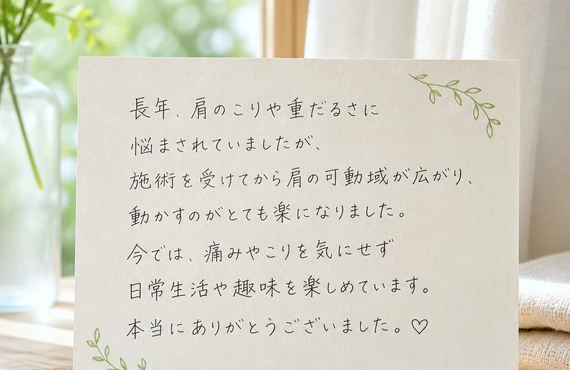 長年、肩のこりや重だるさに
悩まされていましたが、
施術を受けてから肩の可動域が広がり、
動かすのがとても楽になりました。
今では、痛みやこりを気にせず
日常生活や趣味を楽しめています。
本当にありがとうございました。♡